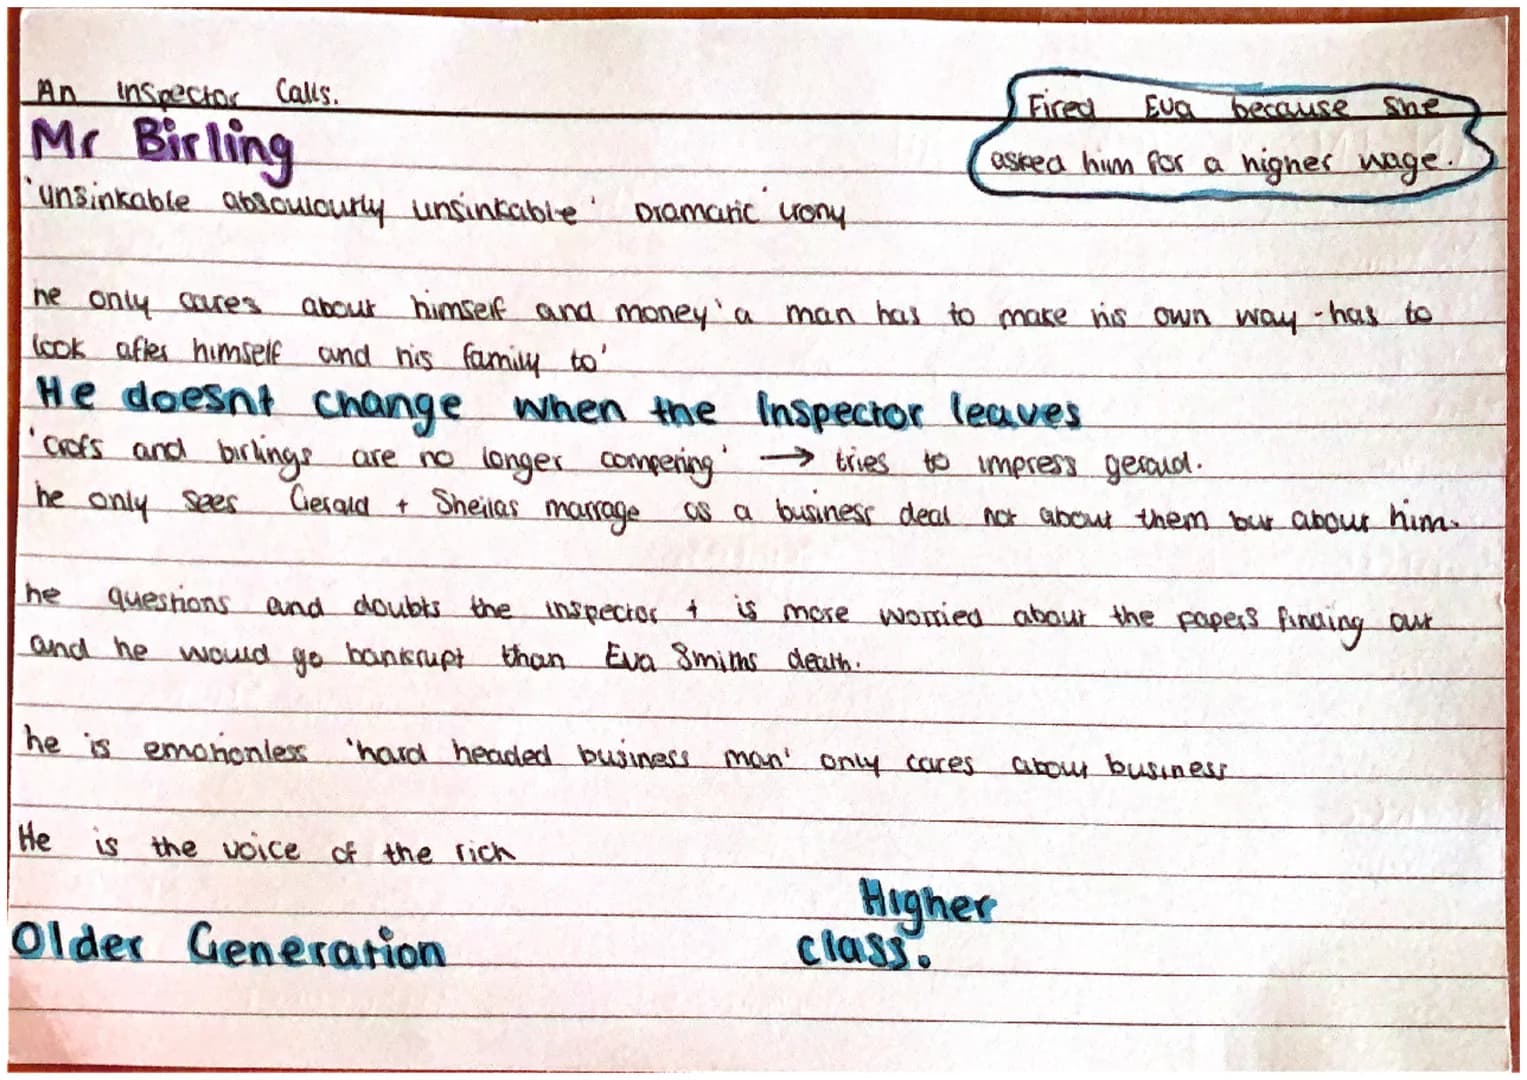 An Inspector Calls.
Fired Eva because she
asked him for a higher wage.
Mr Birling
'unsinkable absoulourly unsinkable' Dramatic irony
he only cares about himself and money 'a man has to make his own way - has to
look after himself and his family to'
He doesnt change when the Inspector leaves
'crofs and birlings are no longer compering' → tries to impress gerald.
he only sees Gerald + Sheilas marrage as a business deal not about them but about him.
he questions and doubts the inspector + is more worried about the papers finding out
and he would go bankrupt than Eva Smiths death.
he is emotionless 'hard headed business man' only cares about business
He is the voice of the rich
Higher
Older Generation class.